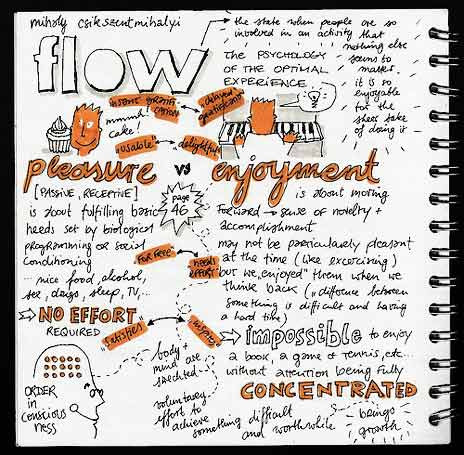 mihaly csikszentmihalyi
flow
→ the state when people are so
involved in an activity that
nothing else
seems to
matter.
it is so
enjoyable
for the
sheer sake
of doing it
THE PSYCHOLOGY
OF THE OPTIMAL
EXPERIENCE
instant gratification
mmm!
cake!
delayed gratification
"usable"
delightful
pleasure vs enjoyment
[PASSIVE, RECEPTIVE]
is about fulfilling basic
needs set by biological
programming or social
conditioning
... nice food, alcohol,
sex, drugs, sleep, TV, ...
→ NO EFFORT
REQUIRED
page
46
FOR FREE
NEEDS
EFFORT
"satisfies"
inspires
is about moving
forward → sense of novelty +
accomplishment
may not be particularly pleasant
at the time (like excercising)
but we "enjoyed" them when we
think back ("difference between
something is difficult and having
a hard time)
⇒ impossible to enjoy
a book, a game of tennis, etc...
without attention being fully
CONCENTRATED
ORDER
in
CONSCIOUS
NESS
body +
mind are
stretched
voluntary
effort to
achieve
something difficult
and worthwhile
brings
growth